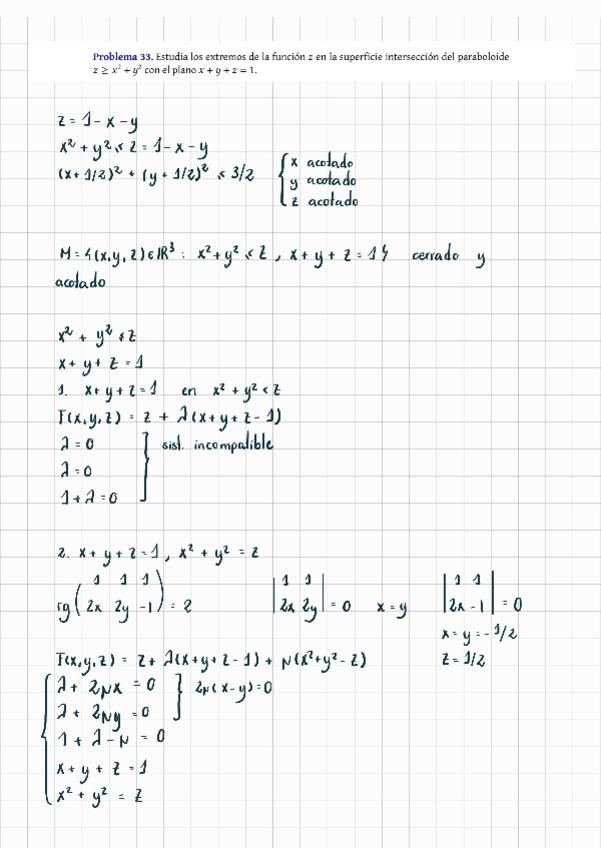 Problema 33. Estudia los extremos de la función z en la superficie intersección del paraboloide
z ≥ x² + y² con el plano x + y + z = 1.
z = 1 - x - y
x² + y² ≤ z = 1 - x - y
(x + 1/2)² + (y + 1/2)² ≤ 3/2 { x acotado
y acotado
z acotado
M = {(x, y, z) ∈ ℝ³ : x² + y² ≤ z, x + y + z = 1} cerrado y
acotado
x² + y² ≤ z
x + y + z = 1
1. x + y + z = 1 en x² + y² < z
F(x, y, z) = z + λ(x + y + z - 1)
λ = 0
λ = 0 } sist. incompatible
1 + λ = 0
2. x + y + z = 1, x² + y² = z
rg ( 1 1 1
2x 2y -1 ) = 2 | 1 1
2x 2y | = 0 x = y | 1 1
2x -1 | = 0
x = y = -1/2
z = 1/2
F(x, y, z) = z + λ(x + y + z - 1) + μ(x² + y² - z)
{ λ + 2μx = 0
λ + 2μy = 0 } 2μ(x - y) = 0
1 + λ - μ = 0
x + y + z = 1
x² + y² = z